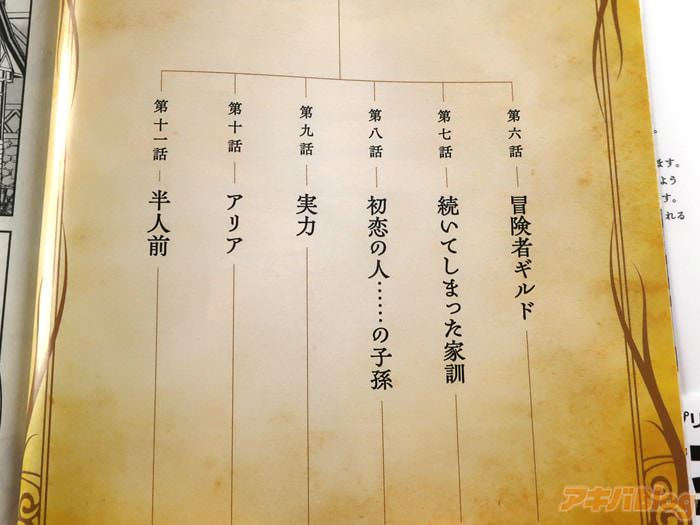 第六話 冒険者ギルド
第七話 続いてしまった家訓
第八話 初恋の人……の子孫
第九話 実力
第十話 アリア
第十一話 半人前
ます。
よう
す。
れる
アキバBlog